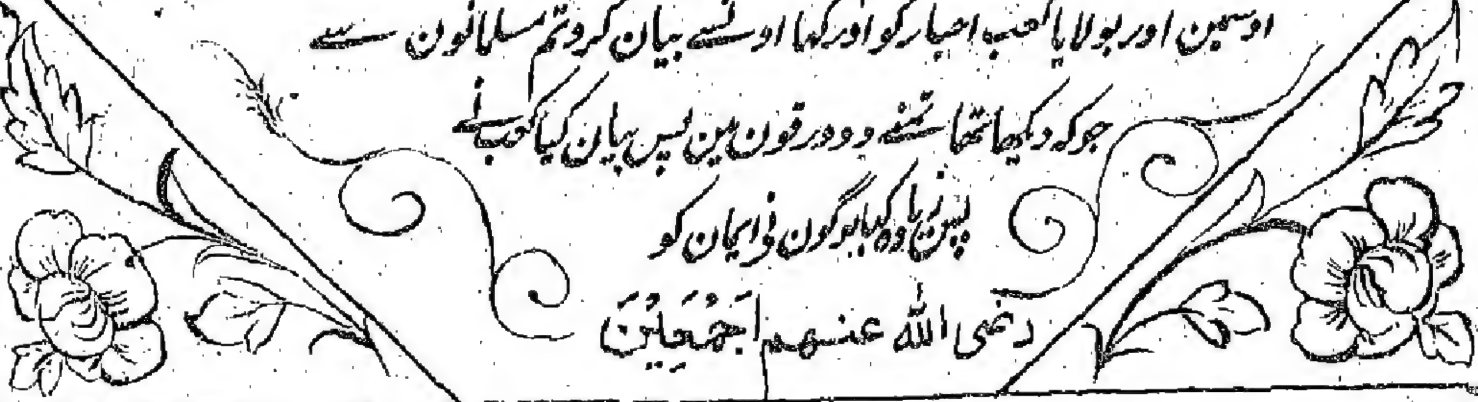 اوسمین اور بولایا کعب احبار کو اور کہا اونسے بیان کرو تم مسلمانون سے
جو کہ دیکھا تھا تمنے دو ورقون مین پس بیان کیا کعب نے
پس زیادہ کیا لوگون نے ایمان کو
رضی اللہ عنہم اَجْمَعِیْنَ